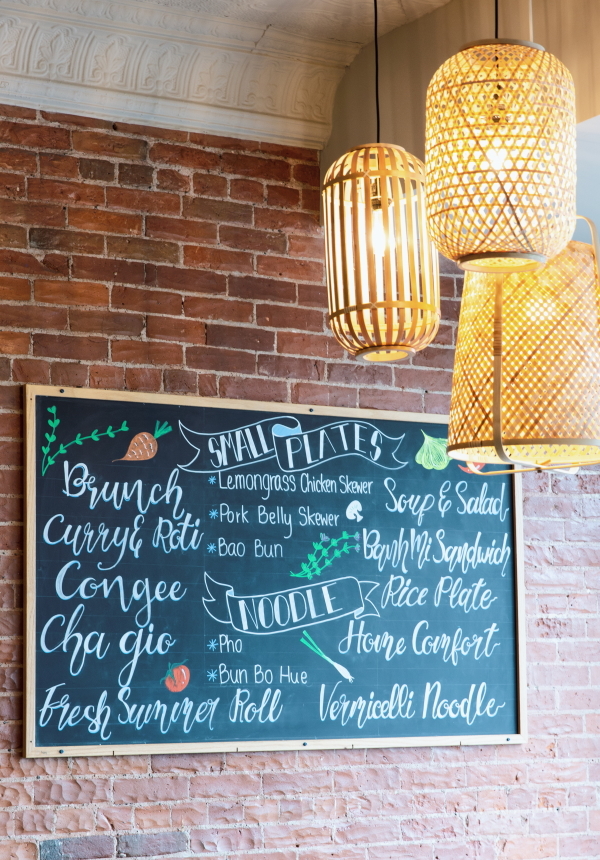 Brunch
Curry & Roti
Congee
Cha gio
Fresh Summer Roll
SMALL PLATES
*Lemongrass Chicken Skewer
*Pork Belly Skewer
*Bao Bun
NOODLE
*Pho
*Bun Bo Hue
Soup & Salad
Banh Mi Sandwich
Rice Plate
Home Comfort
Vermicelli Noodle